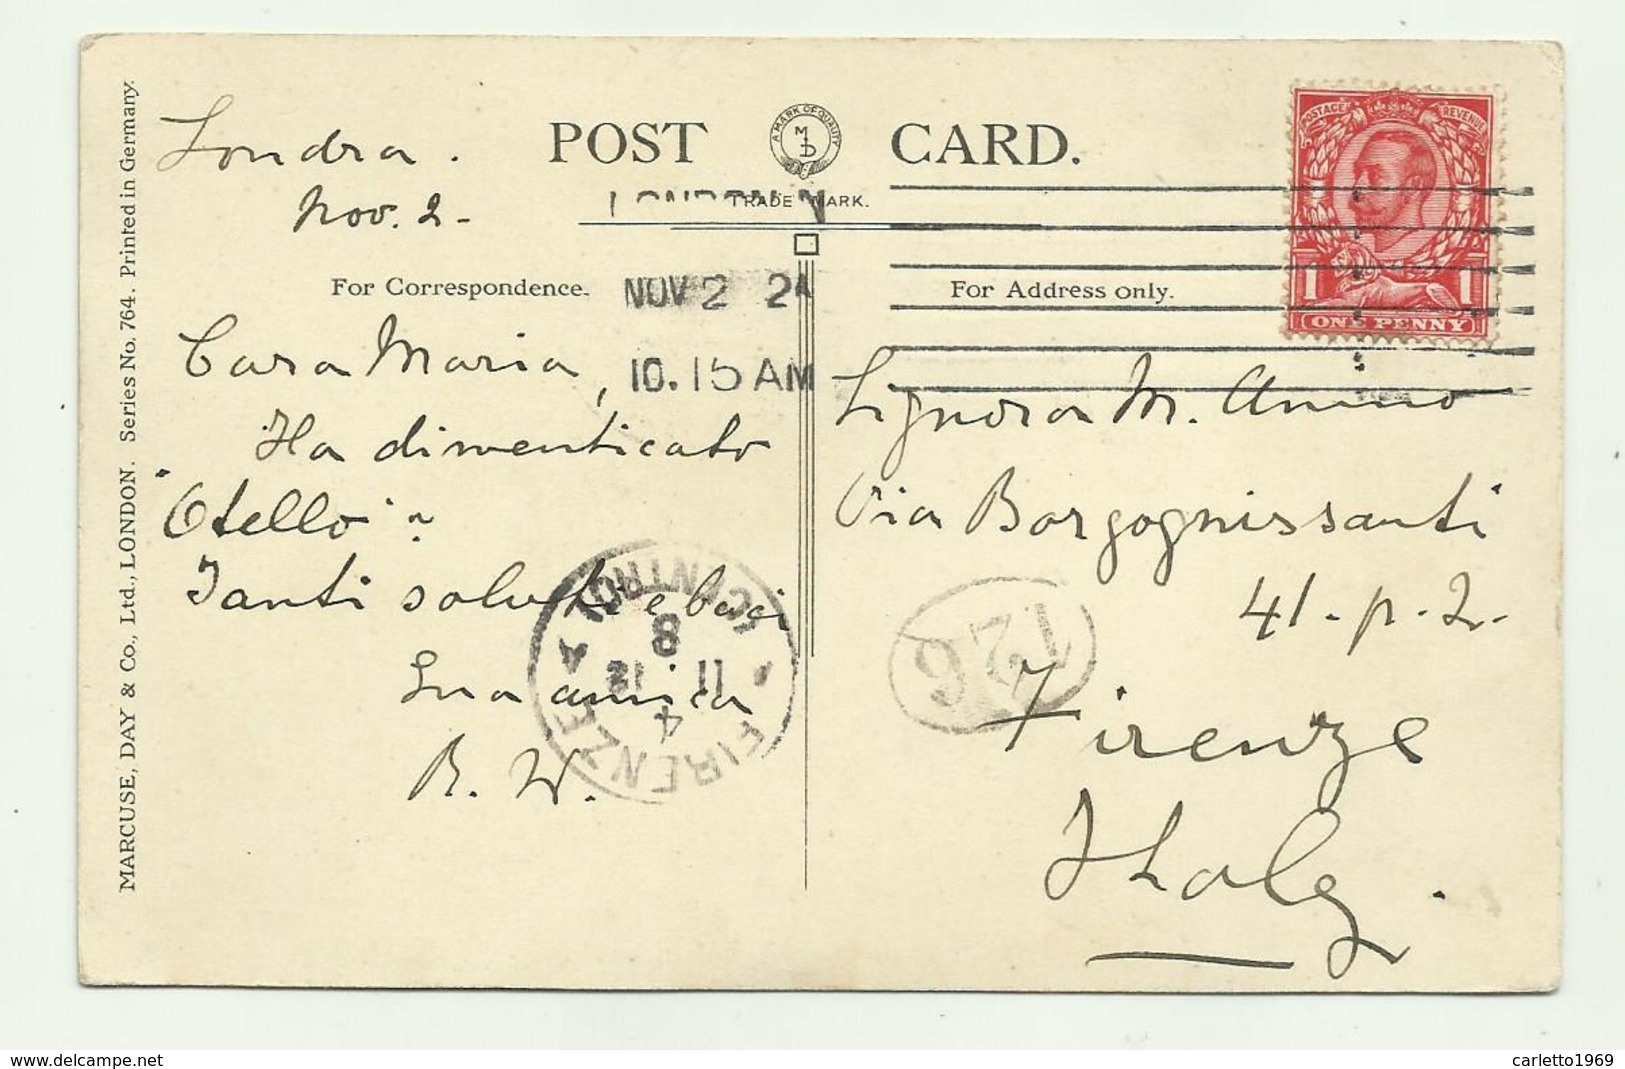 MARCUSE, DAY & Co., Ltd., LONDON. Series No. 764. Printed in Germany.
Londra.
Nov. 2-
POST CARD.
A MARK OF QUALITY
M D
TRADE MARK.
LONDON.N
NOV 2 2A
10.15 AM
POSTAGE REVENUE
1 1
ONE PENNY
For Correspondence.
For Address only.
Cara Maria,
Ha dimenticato
"Otello"?
Tanti salutti e baci
Sua amica
R. W.
Signora M. Amino
Via Borgognissanti
41-p.2-
Firenze
Italy.
FIRENZE A
8
11 12
4
126
www.delcampe.net
carletto1969